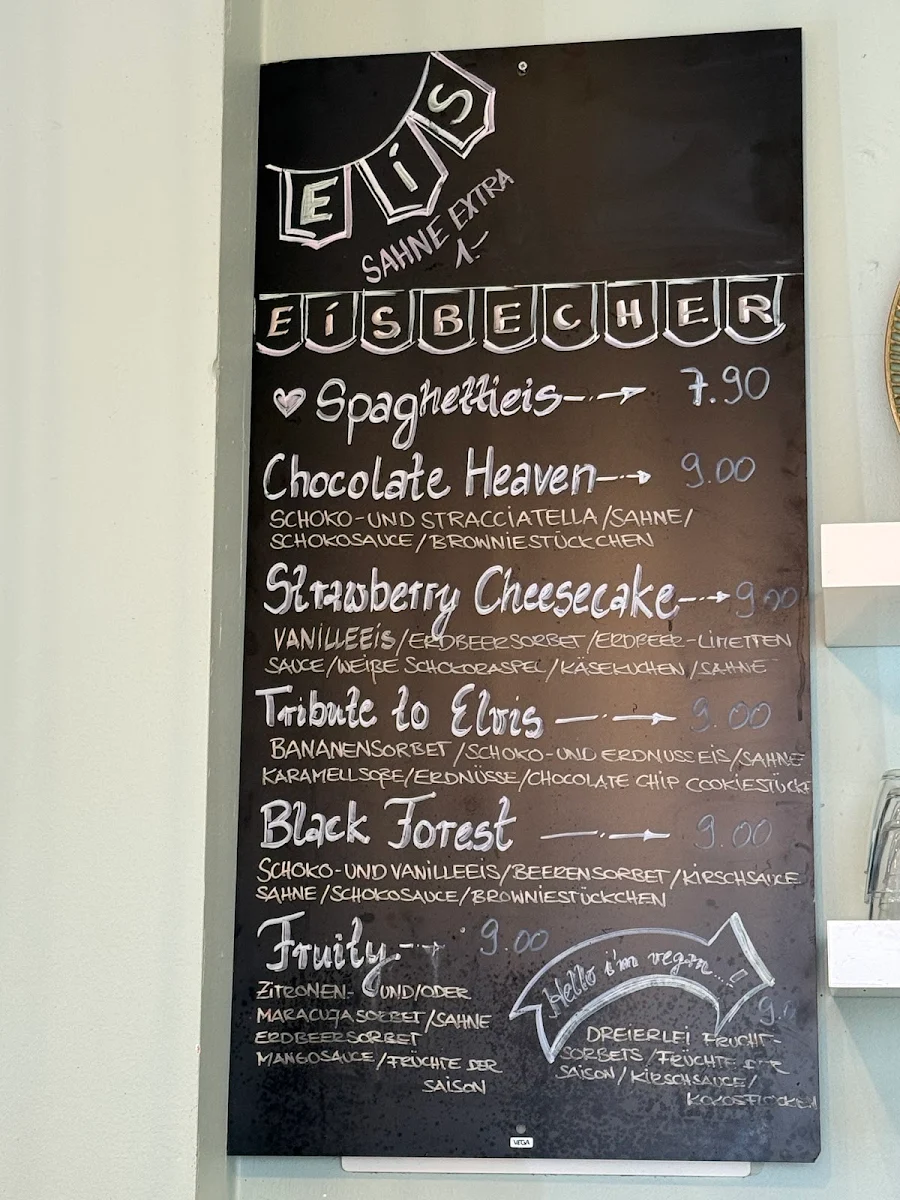 EiS
SAHNE EXTRA
1.-
EiSBECHER
Spaghettieis 7.90
Chocolate Heaven 9.00
SCHOKO-UND STRACCIATELLA/SAHNE/
SCHOKOSAUCE/BROWNIESTÜCKCHEN
Strawberry Cheesecake 9.00
VANILLEEiS/ERDBEERSORBET/ERDBEER-LIMETTEN
SAUCE/WEIßE SCHOKORASPEL/KÄSEKUCHEN/SAHNE
Tribute to Elvis 9.00
BANANENSORBET/SCHOKO-UND ERDNUSSEIS/SAHNE
KARAMELLSOßE/ERDNÜSSE/CHOCOLATE CHIP COOKIESTÜCKE
Black Forest 9.00
SCHOKO-UND VANILLEEIS/BEERENSORBET/KIRSCHSAUCE
SAHNE/SCHOKOSAUCE/BROWNIESTÜCKCHEN
Fruity 9.00
ZITRONEN- UND/ODER
MARACUJASORBET/SAHNE
ERDBEERSORBET
MANGOSAUCE/FRÜCHTE DER
SAISON
Hello i'm vegan...!
DREIERLEI FRUCHT-
SORBETS/FRÜCHTE DER
SAISON/KIRSCHSAUCE/
KOKOSFLOCKEN
VEGA